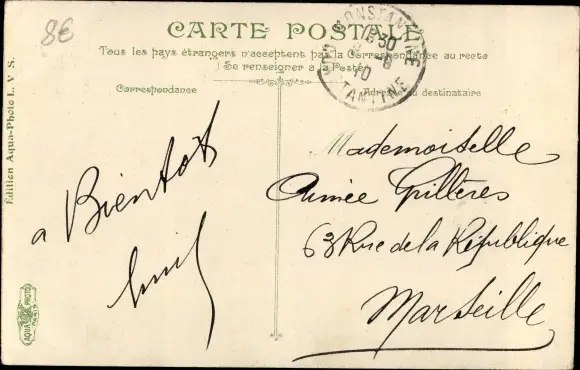 8€
CARTE POSTALE
Tous les pays étrangers n'acceptent pas la Correspondance au recto
(Se renseigner à la Poste)
CONSTANTINE
Correspondance
Adresse du destinataire
Edition Aqua-Photo L. V. S.
a Bientot
Emil
Mademoiselle
Aimée Grillères
63 Rue de la République
Marseille
AQUA PHOTO
PARIS